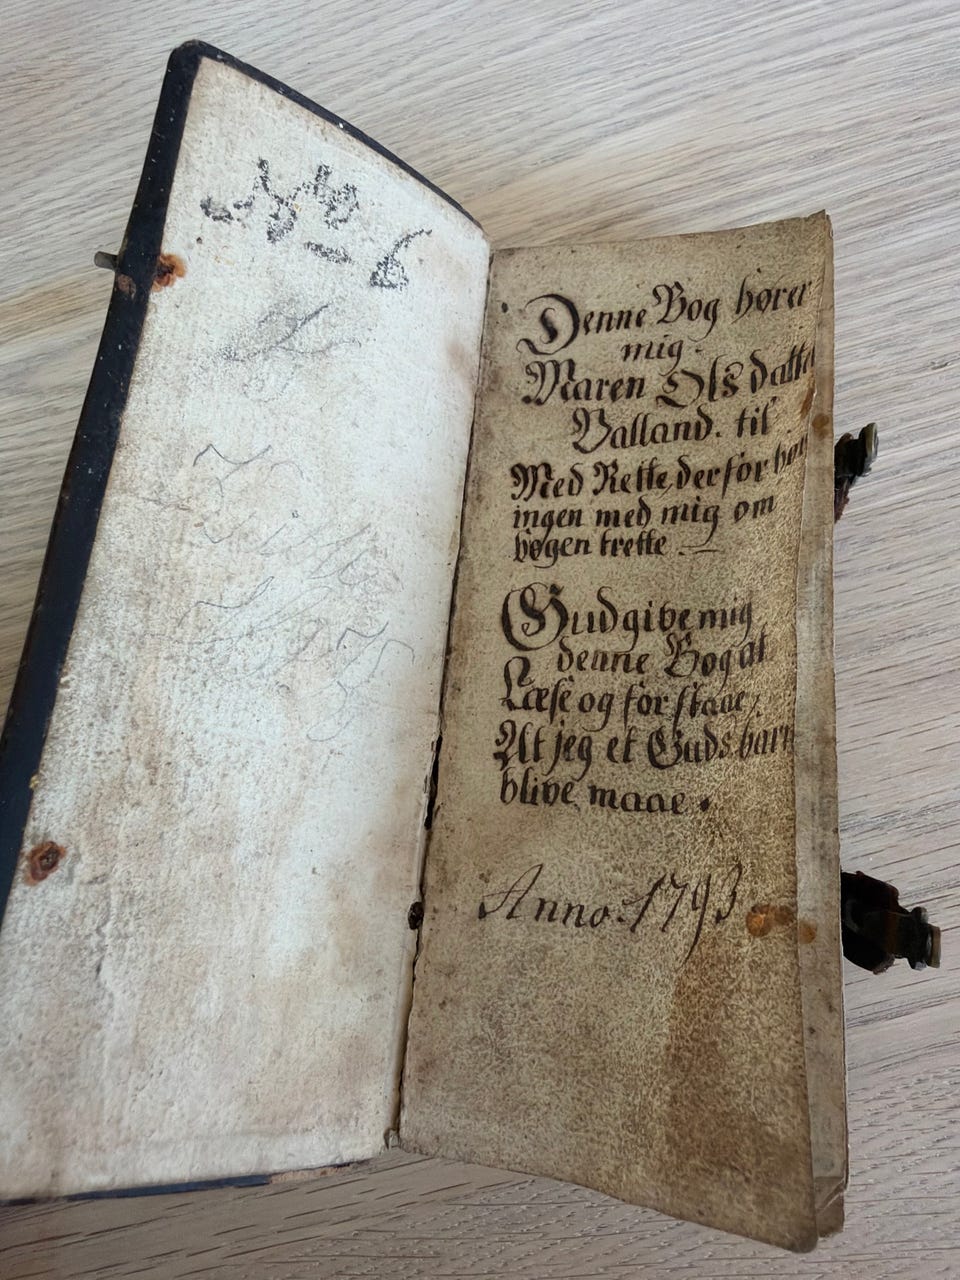 Denne Bog hører
mig.
Maren Olsdatter
Valland. til
Med Rette, derfor bør
ingen med mig om
bogen trette.
Gud give mig
denne Bog at
Læse og forstaae,
At jeg et Guds barn
blive maae.
Anno. 1793